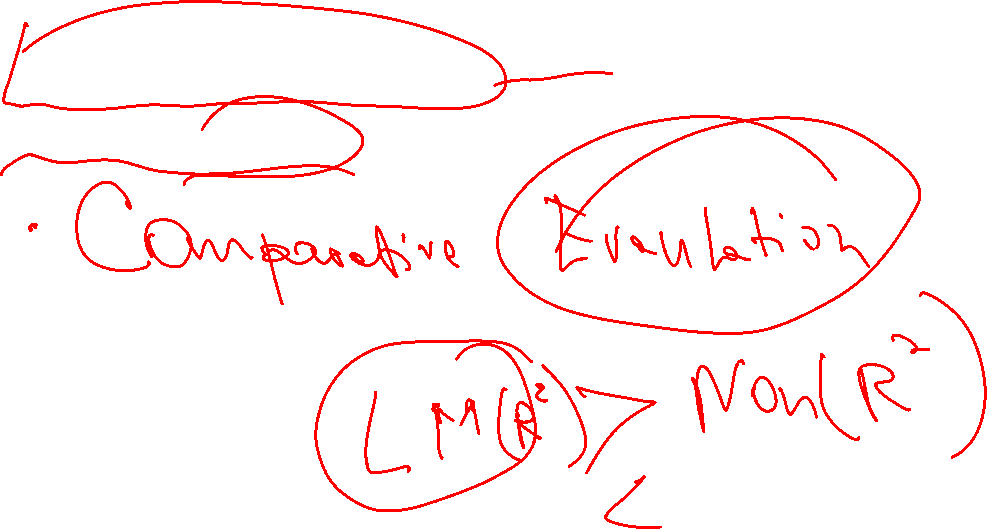 · Comparative Evaulation
LM(R²) > Non(R²)
<